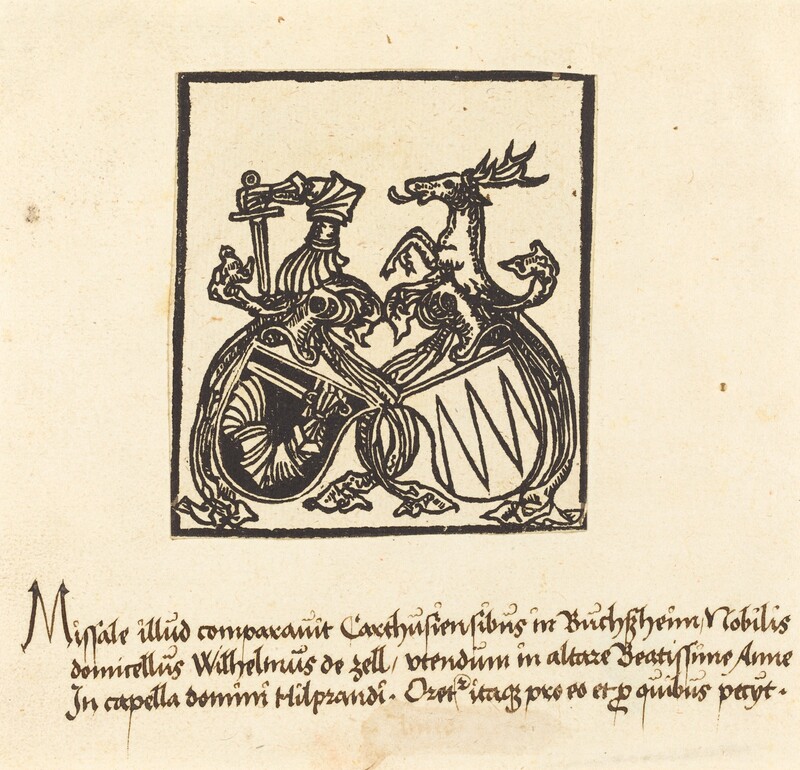 Missale illud comparauit Carthusiensibus in Buchßheim/ Nobilis
domicellus Wilhelmus de zell/ vtendum in altare Beatissime Anne
In capella domini Hilprandi. Oret͛ itaqꝫ pro eo et ꝑ quibus petyt.